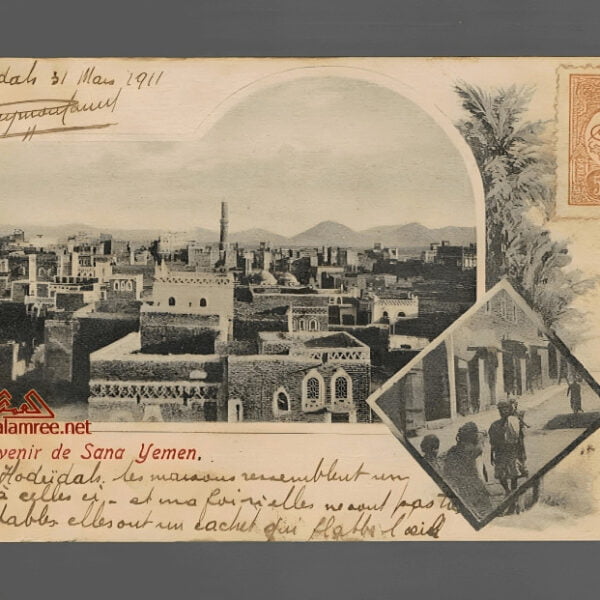 dah 31 Mars 1911
العـ
alamree.net
venir de Sana Yemen.
Hodeïdah, les maisons ressemblent un
à celles ci_ et ma foi elles ne sont pas
tables elles ont un cachet qui flatte l'œil